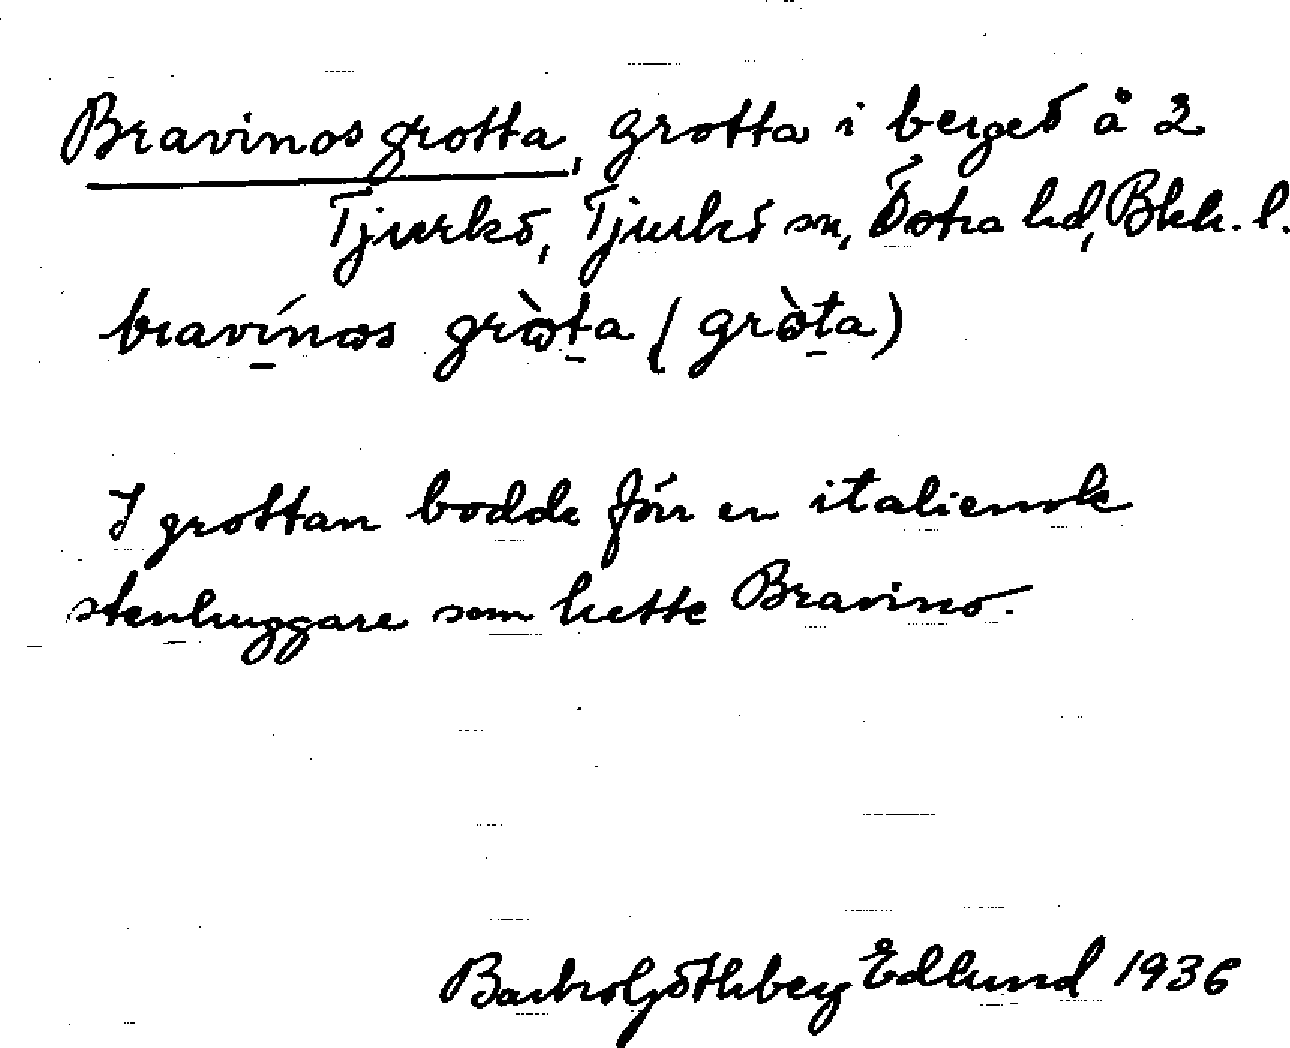 Bravinos grotta, grotta i berget å 2
Tjurkö, Tjurkö sn, Östra hd, Blek. l.
bravínos gròta (gròta)
I grottan bodde förr en italiensk
stenhuggare som hette Bravino.
Göthberg Edlund 1936